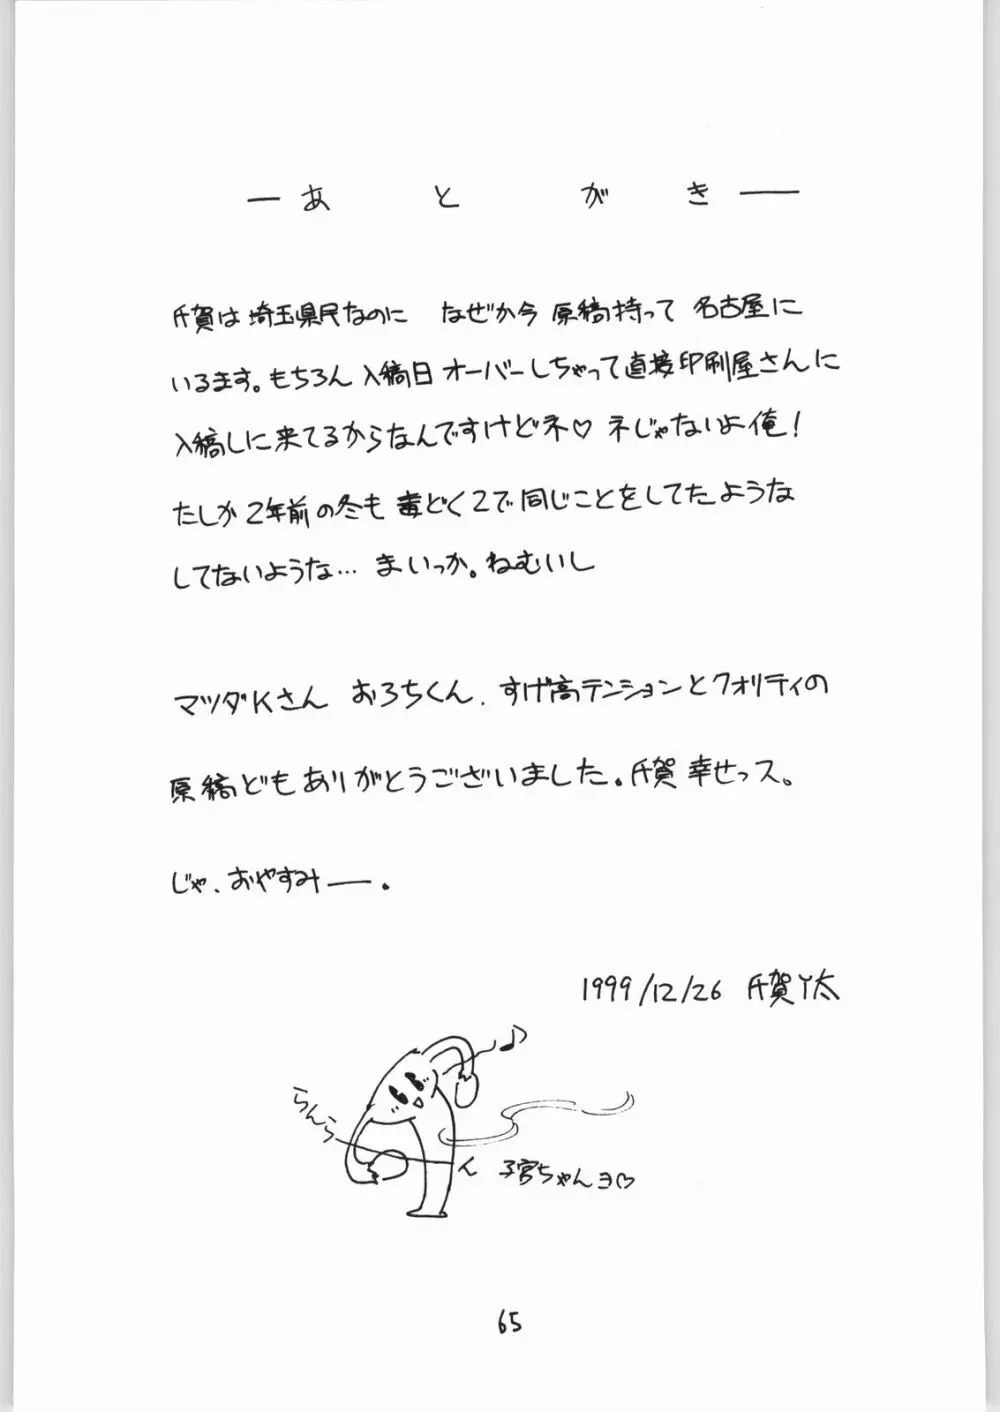 ―あとがき―
氏賀は埼玉県民なのに なぜか今 原稿持って 名古屋に
いるます。もちろん 入稿日 オーバーしちゃって直接印刷屋さんに
入稿しに来てるからなんですけどネ♡ ネじゃないよ俺!
たしか2年前の冬も 毒どく2で同じことをしてたような
してないような… まいっか。ねむいし
マツダKさん おろちくん、すげ高テンションとクオリティの
原稿どもありがとうございました。氏賀 幸せっス。
じゃ、おやすみ―。
1999/12/26 氏賀Y太
♪
らんらん
子宮ちゃんヨ♡
65